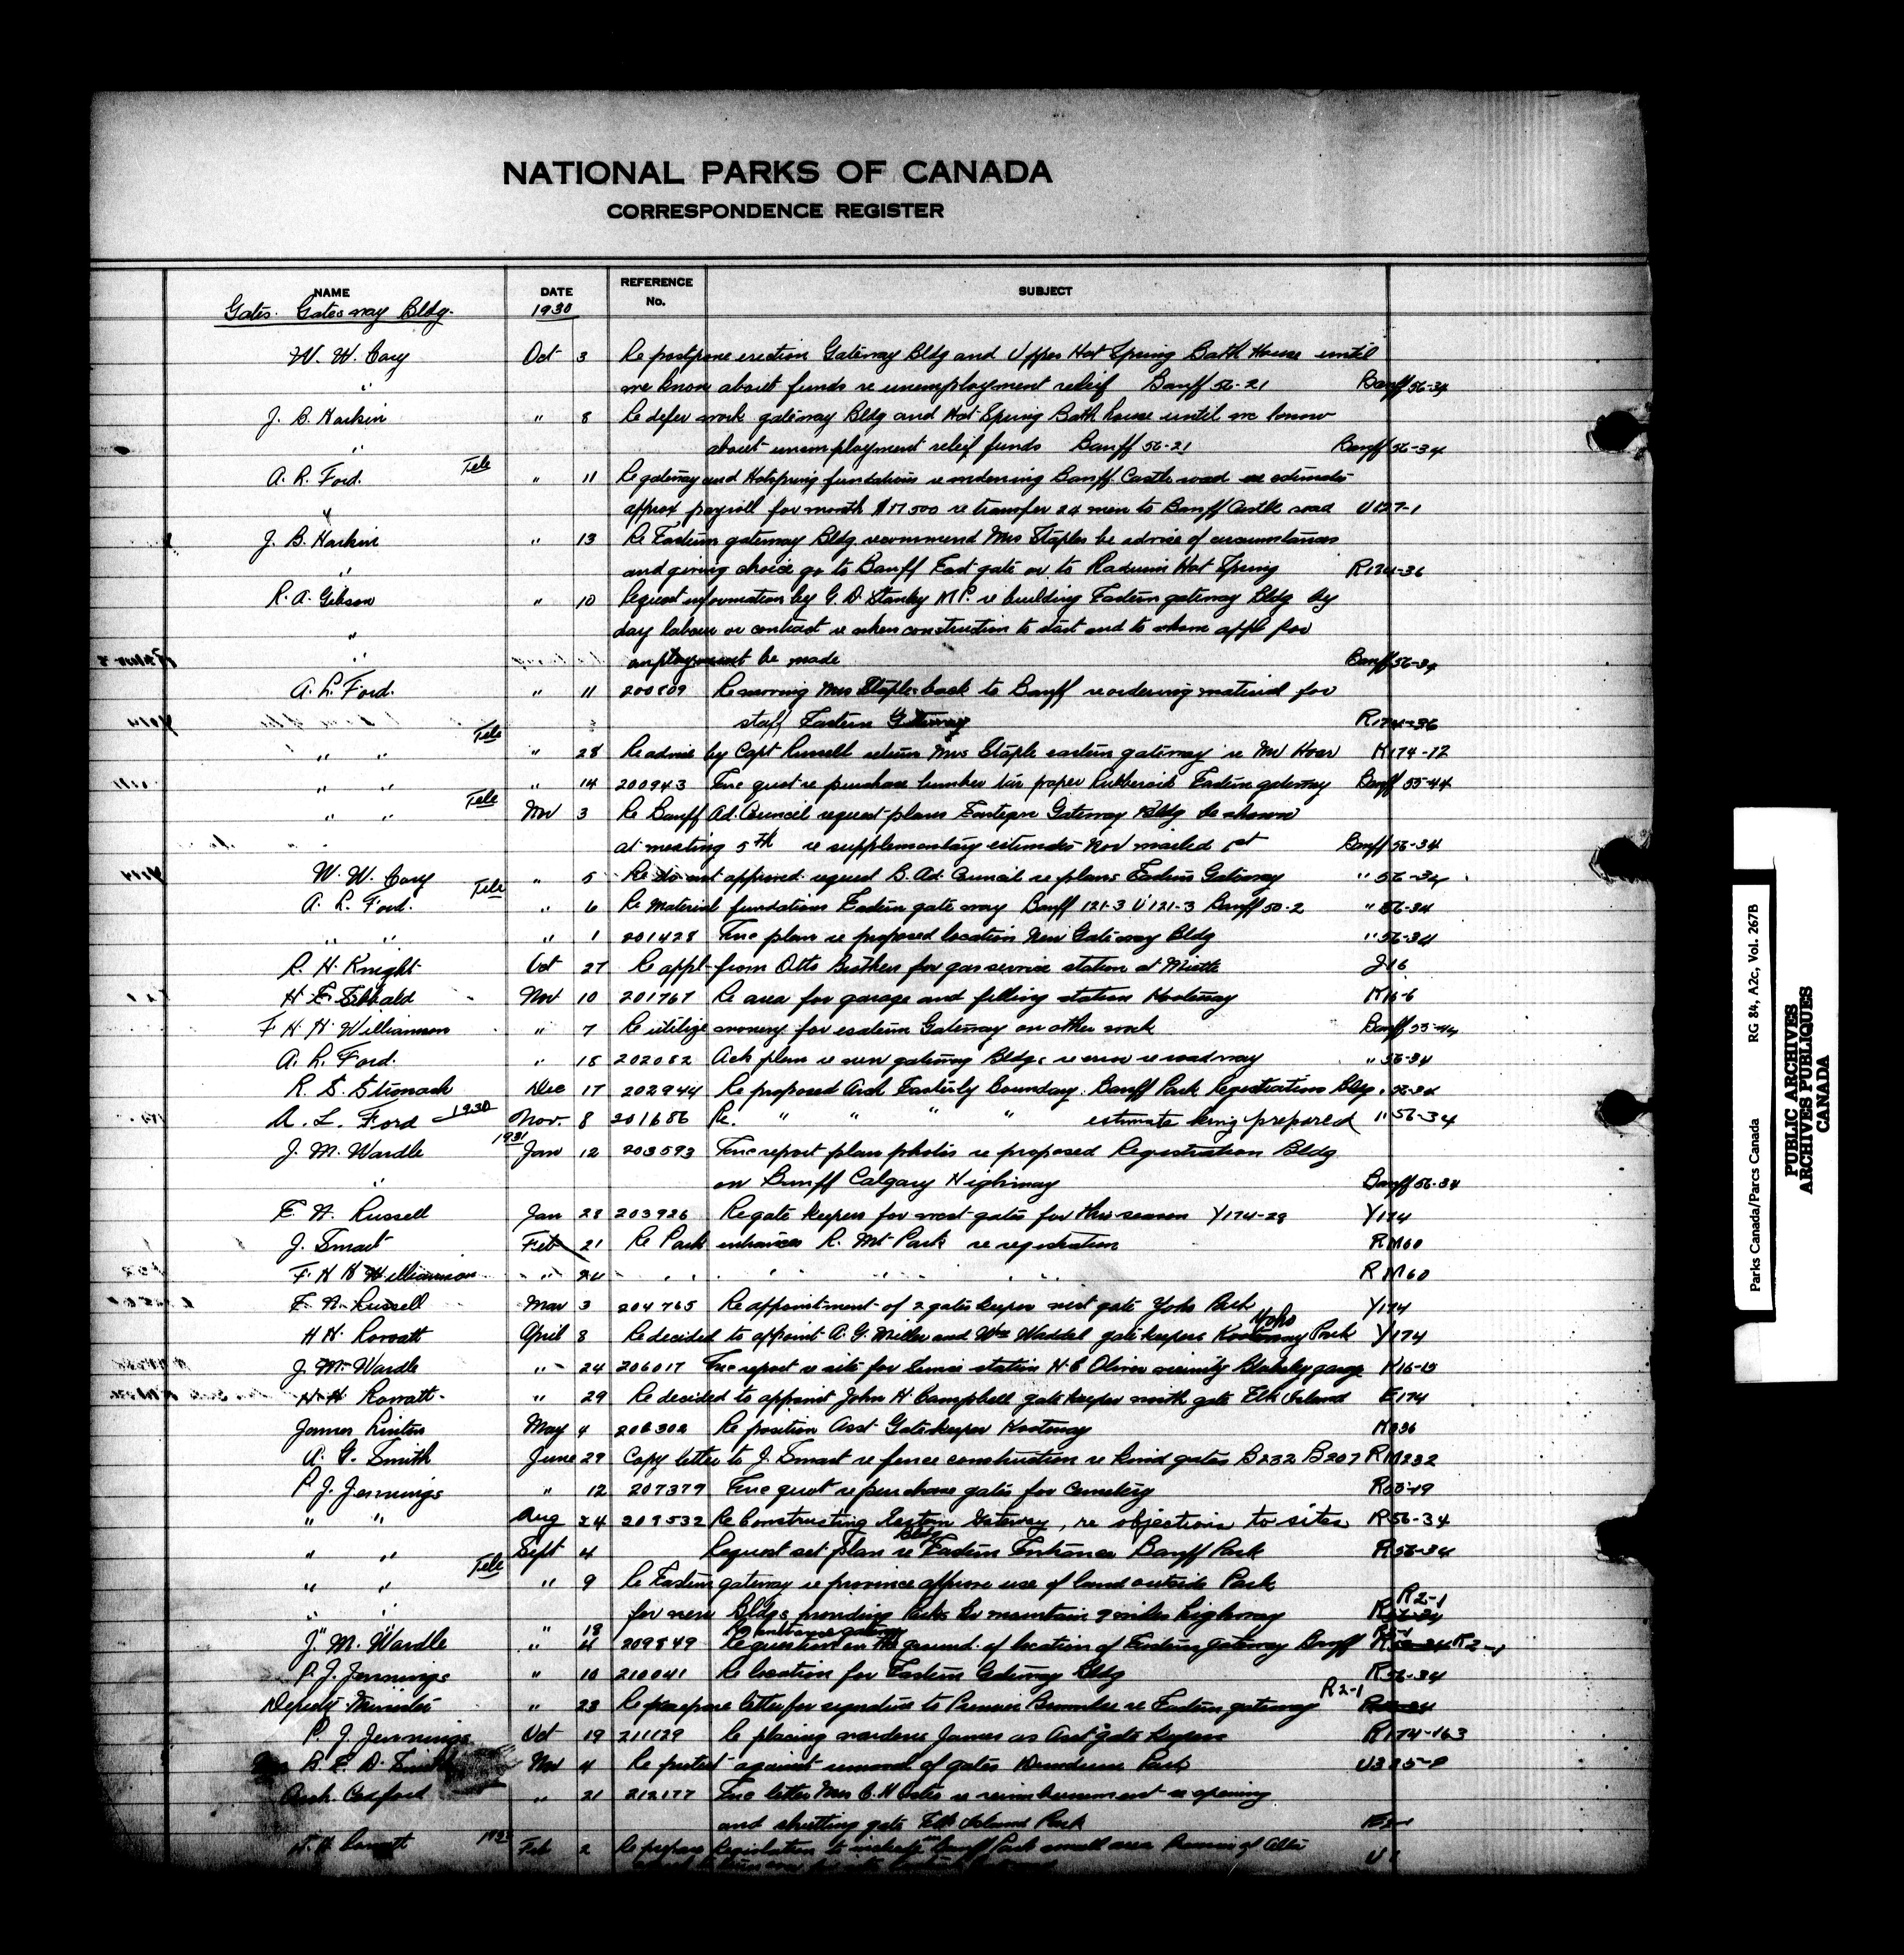 NATIONAL PARKS OF CANADA
CORRESPONDENCE REGISTER
NAME DATE REFERENCE No. SUBJECT
Gates. Gatesway Bldg. 1930
W. W. Cory Oct 3 Re postpone erection Gateway Bldg and Upper Hot Spring Bath House until
" we know about funds re unemployment relief Banff 56-21 Banff 56-34
J. B. Harkin " 8 Re defer work gateway Bldg and Hot Spring Bath house until we know
" about unemployment relief funds Banff 56-21 Banff 56-34
A. L. Ford. Tele " 11 Re gateway and Hotspring fundations re widening Banff Castle road re estimates
" approx payroll for month $17500 re transfer 24 men to Banff Castle road U127-1
J. B. Harkin " 13 Re Eastern gateway Bldg recommend Mrs Staples be advise of circumstances
" and giving choice go to Banff East gate or to Radium Hot Spring R174-36
R. A. Gibson " 10 Request information by G. D. Stanley M.P. re building Eastern gateway Bldg by
" day labour or contract re when construction to start and to whom appl for
" employment be made Banff 56-34
A. L. Ford. " 11 200809 Re moving Mrs Staples back to Banff re ordering material for
staff Eastern Gateway R174-36
" " Tele " 28 Re advice by Capt Russell return Mrs Staple eastern gateway re Mr Hoar K174-12
" " " 14 200943 Enc quot re purchase lumber tar paper Rubberoid Eastern gateway Banff 55-44
" " Tele Nov 3 Re Banff Ad. Council request plans Eastern Gateway Bldg be shown
at meeting 5th re supplementary estimates Nov mailed 1st Banff 56-34
W. W. Cory " 5 Re do not approved request B. Ad. Council re plans Eastern Gateway " 56-34
A. L. Ford. Tele " 6 Re Material fundations Eastern gate way Banff 121-3 U121-3 Banff 50-2 " 56-34
" " " 1 201428 Enc plan re proposed location New Gateway Bldg " 56-34
R. H. Knight Oct 27 Re appl from Otto Brothers for gas service station at Miette J16
H. E. Sibbald Nov 10 201767 Re area for garage and filling station Kootenay K16-6
F H H Williamson " 7 Re utilize money for eastern Gateway on other work Banff 55-44
A. L. Ford. " 18 202082 Ack plan re new gateway Bldgs re new roadway " 56-34
R. S. Stronach Dec 17 202944 Re proposed Arch Easterly boundary. Banff Park Registration Bldg " 56-34
A. L. Ford 1930 Nov. 8 201686 Re. " " " " estimate being prepared " 56-34
J. M. Wardle 1931 Jan 12 203593 Enc report plan photos re proposed Registration Bldg
" on Banff Calgary Highway Banff 56-34
E. N. Russell Jan 28 203926 Re gate keepers for west gates for this season Y174-28 Y174
J. Smart Feb 21 Re Park entrances R. Mt Park re registration RM60
F. H H Williamson " 24 " " " " " RM60
E. N. Russell Mar 3 204765 Re appointment of 2 gates keeper west gate Yoho Park Y174
H H. Rowatt April 8 Re decided to appoint A. G. Miller and Wm Waddel gate keepers Kootenay Yoho Park Y174
J. M. Wardle " 24 206017 Enc report re site for service station H. C Oliver vicinity Blakely garage K16-13
H. H Rowatt. " 29 Re decided to appoint John H. Campbell gate keeper north gate Elk Island E174
James Linton May 4 Re position Asst Gate keeper Kootenay K336
A. G. Smith June 29 Copy letter to J. Smart re fence construction re kind gates B232 B207 RM232
P. J. Jennings " 12 207379 Enc quot re purchase gates for Cemetery
" " Aug 24 209532 Re Constructing Eastern Gateway, re objections to sites R56-34
" " Sept 4 Request set plan re Eastern Entrance Bldg Banff Park R56-34
" " Tele " 9 Re Eastern gateway re province approve use of land outside Park
" " for new Bldgs providing Parks Br maintain 9 miles highway R56-34 R2-1
" " " 18 Re entrance gateway R2-1
J. M. Wardle " 4 209849 Re question on the ground of location of Eastern gateway Banff R56-34 R2-1
P. J. Jennings " 10 210041 Re location for Eastern Gateway Bldg R56-34
Deputy Minister " 23 Re prepare letter for signature to Premier Brownlee re Eastern gateway R2-1 R56-34
P. J. Jennings Oct 19 211129 Re placing wardens James as Asst gate keepers R174-163
Mrs R. E. D. Smith Nov 4 Re protest against removal of gates Dundurn Park U325-9
Arch. Coxford " 21 212177 Enc letter Mrs C. H Oates re reimbursement re opening
and shutting gate Elk Island Park E2-1
H. H Rowatt Feb 2 Re prepare Legislation to include in Banff Park small area Province of Alta
Parks Canada/Parcs Canada RG 84, A2c, Vol. 267B
PUBLIC ARCHIVES
ARCHIVES PUBLIQUES
CANADA